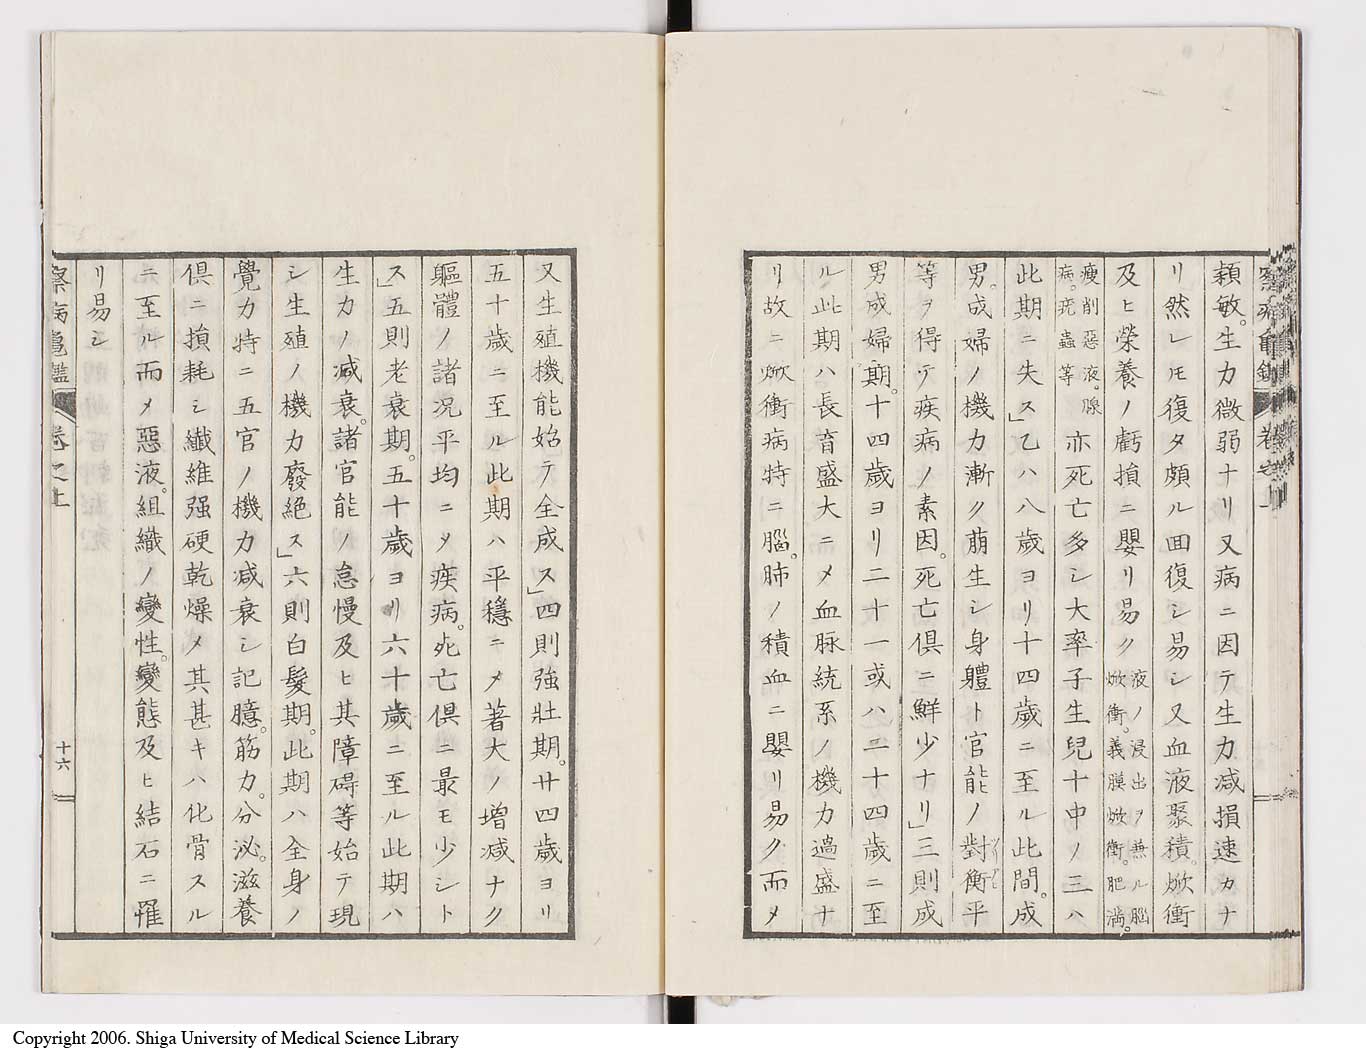 頴敏。生力微弱ナリ又病ニ因テ生力减損速カナ
リ然レモ復タ頗ル回復シ易シ又血液聚積。焮衝
及ヒ榮養ノ虧損ニ嬰リ易ク液ノ浸出ヲ兼ル腦
焮衝。義膜焮衝。肥満。
瘦削惡液。腺
病。疣蟲等亦死亡多シ大率子生兒十中ノ三ハ
此期ニ失ス」乙ハ八歳ヨリ十四歳ニ至ル此間。成
男。成婦ノ機力漸ク萠生シ身軆ト官能ノ對衡平
等ヲ得テ疾病ノ素因。死亡倶ニ鮮少ナリ」三則成
男成婦期。十四歳ヨリ二十一或ハ二十四歳ニ至
ル此期ハ長育盛大ニメ血脉統系ノ機力過盛ナ
リ故ニ焮衝病特ニ腦。肺ノ積血ニ嬰リ易ク而メ
又生殖機能始テ全成ス」四則強壯期。廿四歳ヨリ
五十歳ニ至ル此期ハ平穩ニメ著大ノ増减ナク
軀體ノ諸况平均ニメ疾病。死亡倶ニ最モ少シト
ス」五則老衰期。五十歳ヨリ六十歳ニ至ル此期ハ
生力ノ减衰。諸官能ノ怠慢及ヒ其障碍等始テ現
シ生殖ノ機力廢絶ス」六則白髮期。此期ハ全身ノ
覺力特ニ五官ノ機力减衰シ記臆。筋力。分泌。滋養
倶ニ損耗シ纎維强硬乾燥メ其甚キハ化骨スル
ニ至ル而メ惡液。組織ノ變性。變態及ヒ結石ニ罹
リ易シ
察病龜鑑 卷之上 十六
Copyright 2006. Shiga University of Medical Science Library